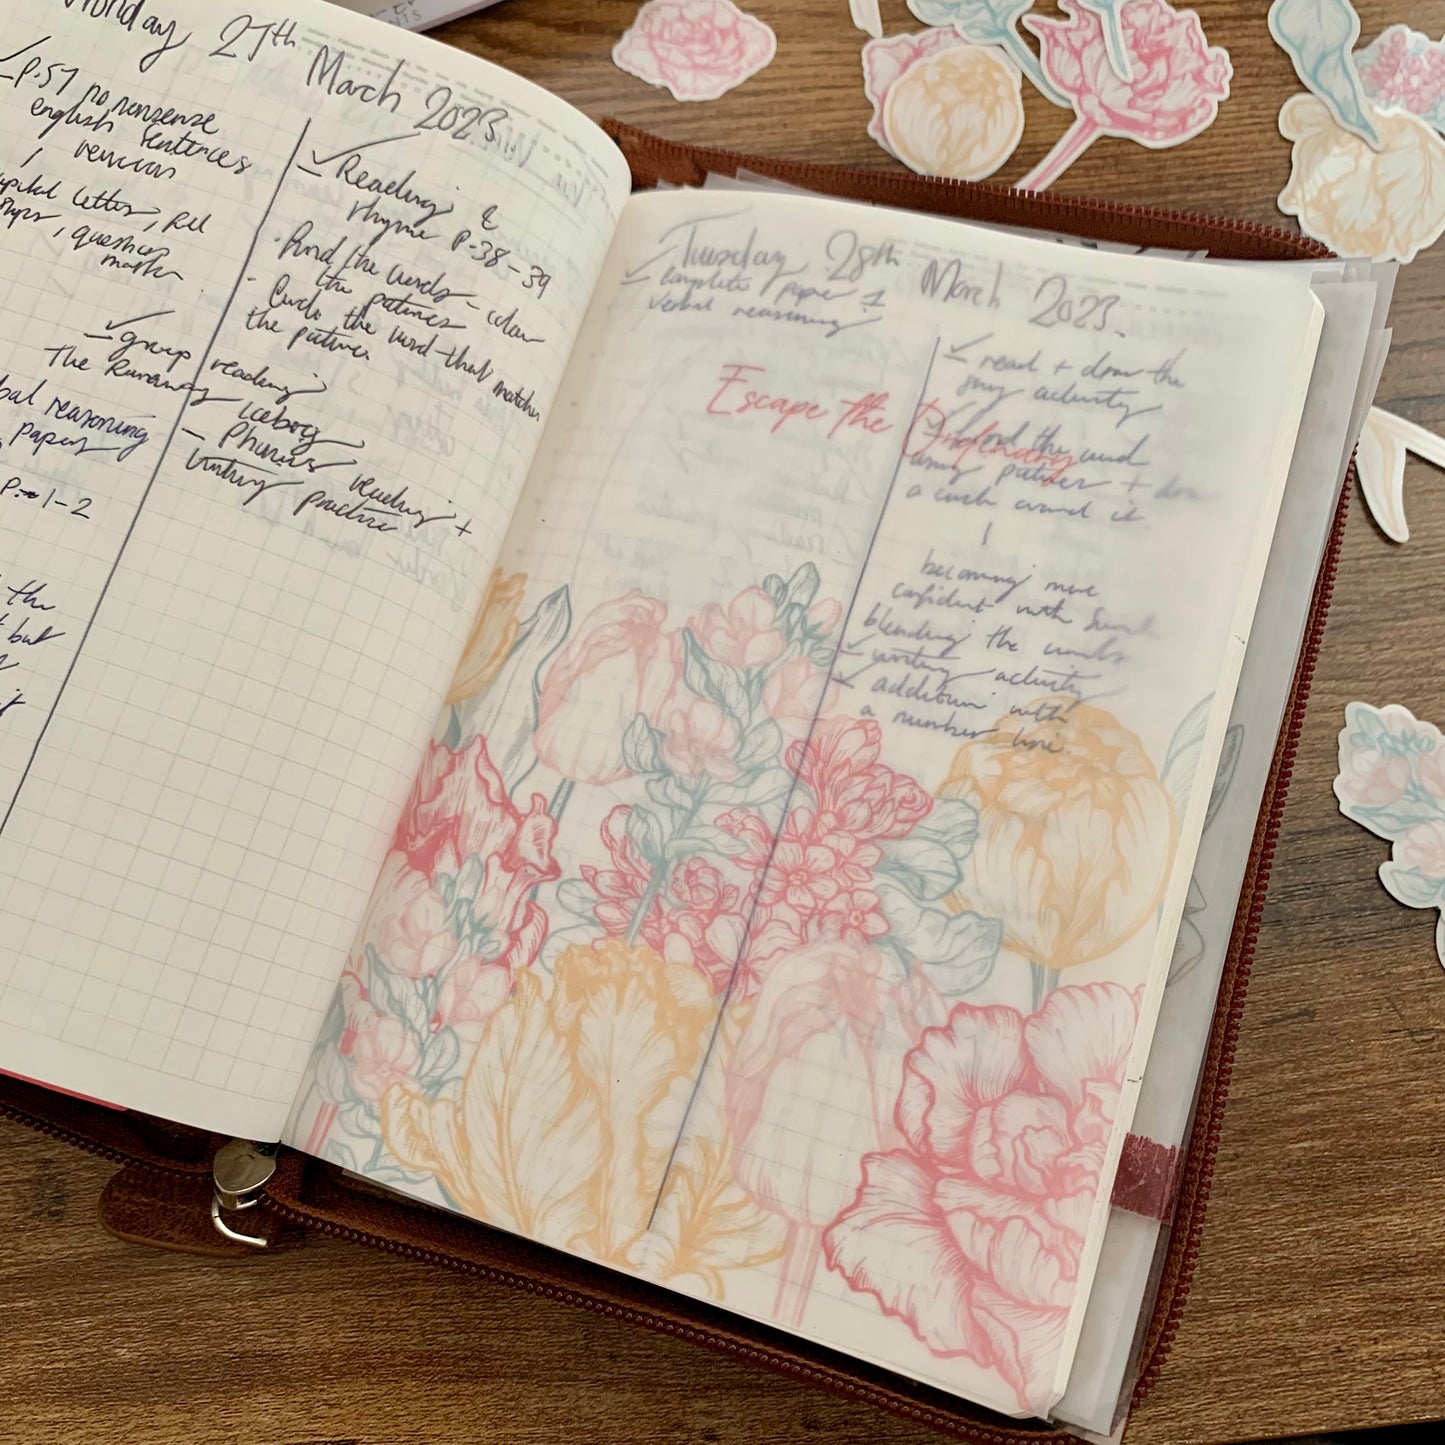 Monday 27th March 2023
P.57 no nonsense
english sentences
revision
capital letters, full
stops, question
marks
group reading
The Runaway Iceberg
- Phonics reading +
writing practice
verbal reasoning
paper
P. 1-2
the
but
Reading &
rhyme P.38-39
· Find the words - colour
the pictures
- Circle the word that matches
the picture
Tuesday 28th March 2023
Complete paper 1
verbal reasoning
Escape the Ordinary
read + draw the
activity
Find the word
+ draw
a circle around it
becoming more
confident with
blending the words
writing activity
addition with
a number line.